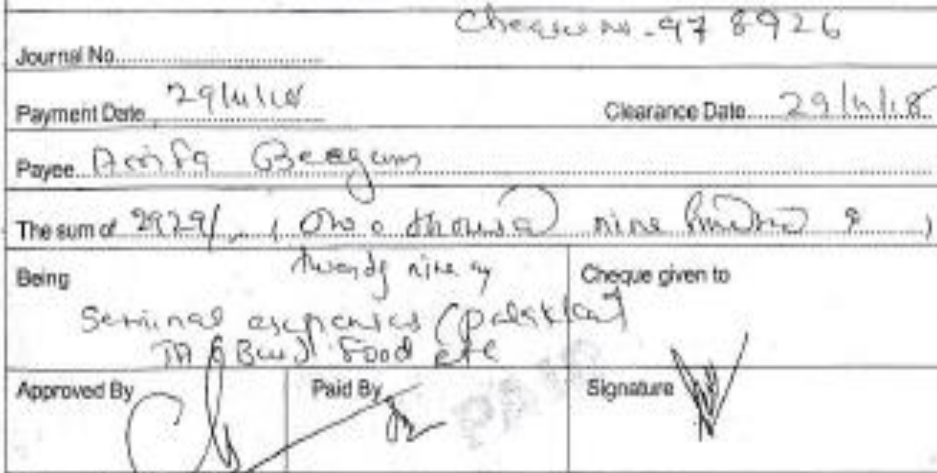 Cheque no. 978926
Journal No.
Payment Date 29/11/18 Clearance Date 29/11/18
Payee Beegum
The sum of 2929/- ( two thousand nine hundred & )
twenty nine only
Being Cheque given to
Seminar expenses (Palakkad)
TA (Bus) Food etc
Approved By Paid By Signature